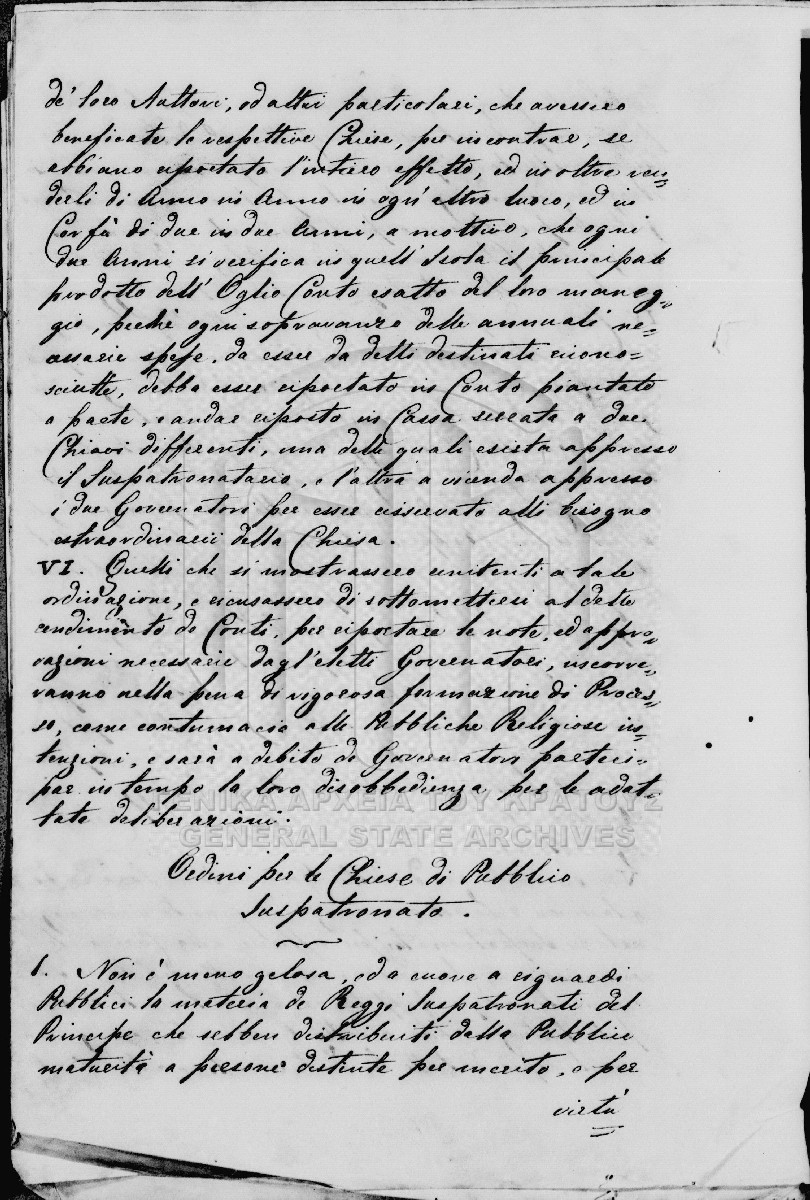 de' loro Auttori, od altri particolari, che avessero
beneficate le respettive Chiese, per incontrar, se
abbiano riportato l'intiero effetto, ed in oltre ren=
derli di Anno in Anno in ogn'altro luoco, ed in
Corfù di due in due Anni, a mottivo, che ogni
due Anni si verifica in quell'Isola il principale
prodotto dell'Oglio Conto esatto del loro maneg=
gio, perchè ogni sopravanzo delle annuali ne=
cessarie spese, da esser da detti destinati ricono=
sciutte, debba esser riportato in Conto piantato
a parte, e andar riposto in Cassa serrata a due
Chiavi differenti, una delle quali esista appresso
il Juspatronatario, e l'altra a vicenda appresso
i due Governatori per esser risservato alli bisogno
estraordinarii della Chiesa.
VI. Quelli che si mostrassero renitenti a tale
ordinazione, e ricusassero di sottomettersi al dette
rendimento de Conti, per riportare le note, ed appro=
vazioni necessarie dagl'eletti Governatori, incorre=
ranno nella pena di rigorosa formazione di Proces=
so, come contumacia alle Pubbliche Religiose in=
tenzioni, e sarà a debito de Governatori parteci=
par in tempo la loro disobbedienza per le adat=
tate deliberazioni.
ΓΕΝΙΚΑ ΑΡΧΕΙΑ ΤΟΥ ΚΡΑΤΟΥΣ
GENERAL STATE ARCHIVES
Ordini per le Chiese di Pubblico
Juspatronato.
I. Non è meno gelosa, ed a cuore a riguardi
Pubblici la materia de Reggi Juspatronati del
Principe che sebben distribuiti dalla Pubblica
maturità a persone distinte per merito, e per
virtù